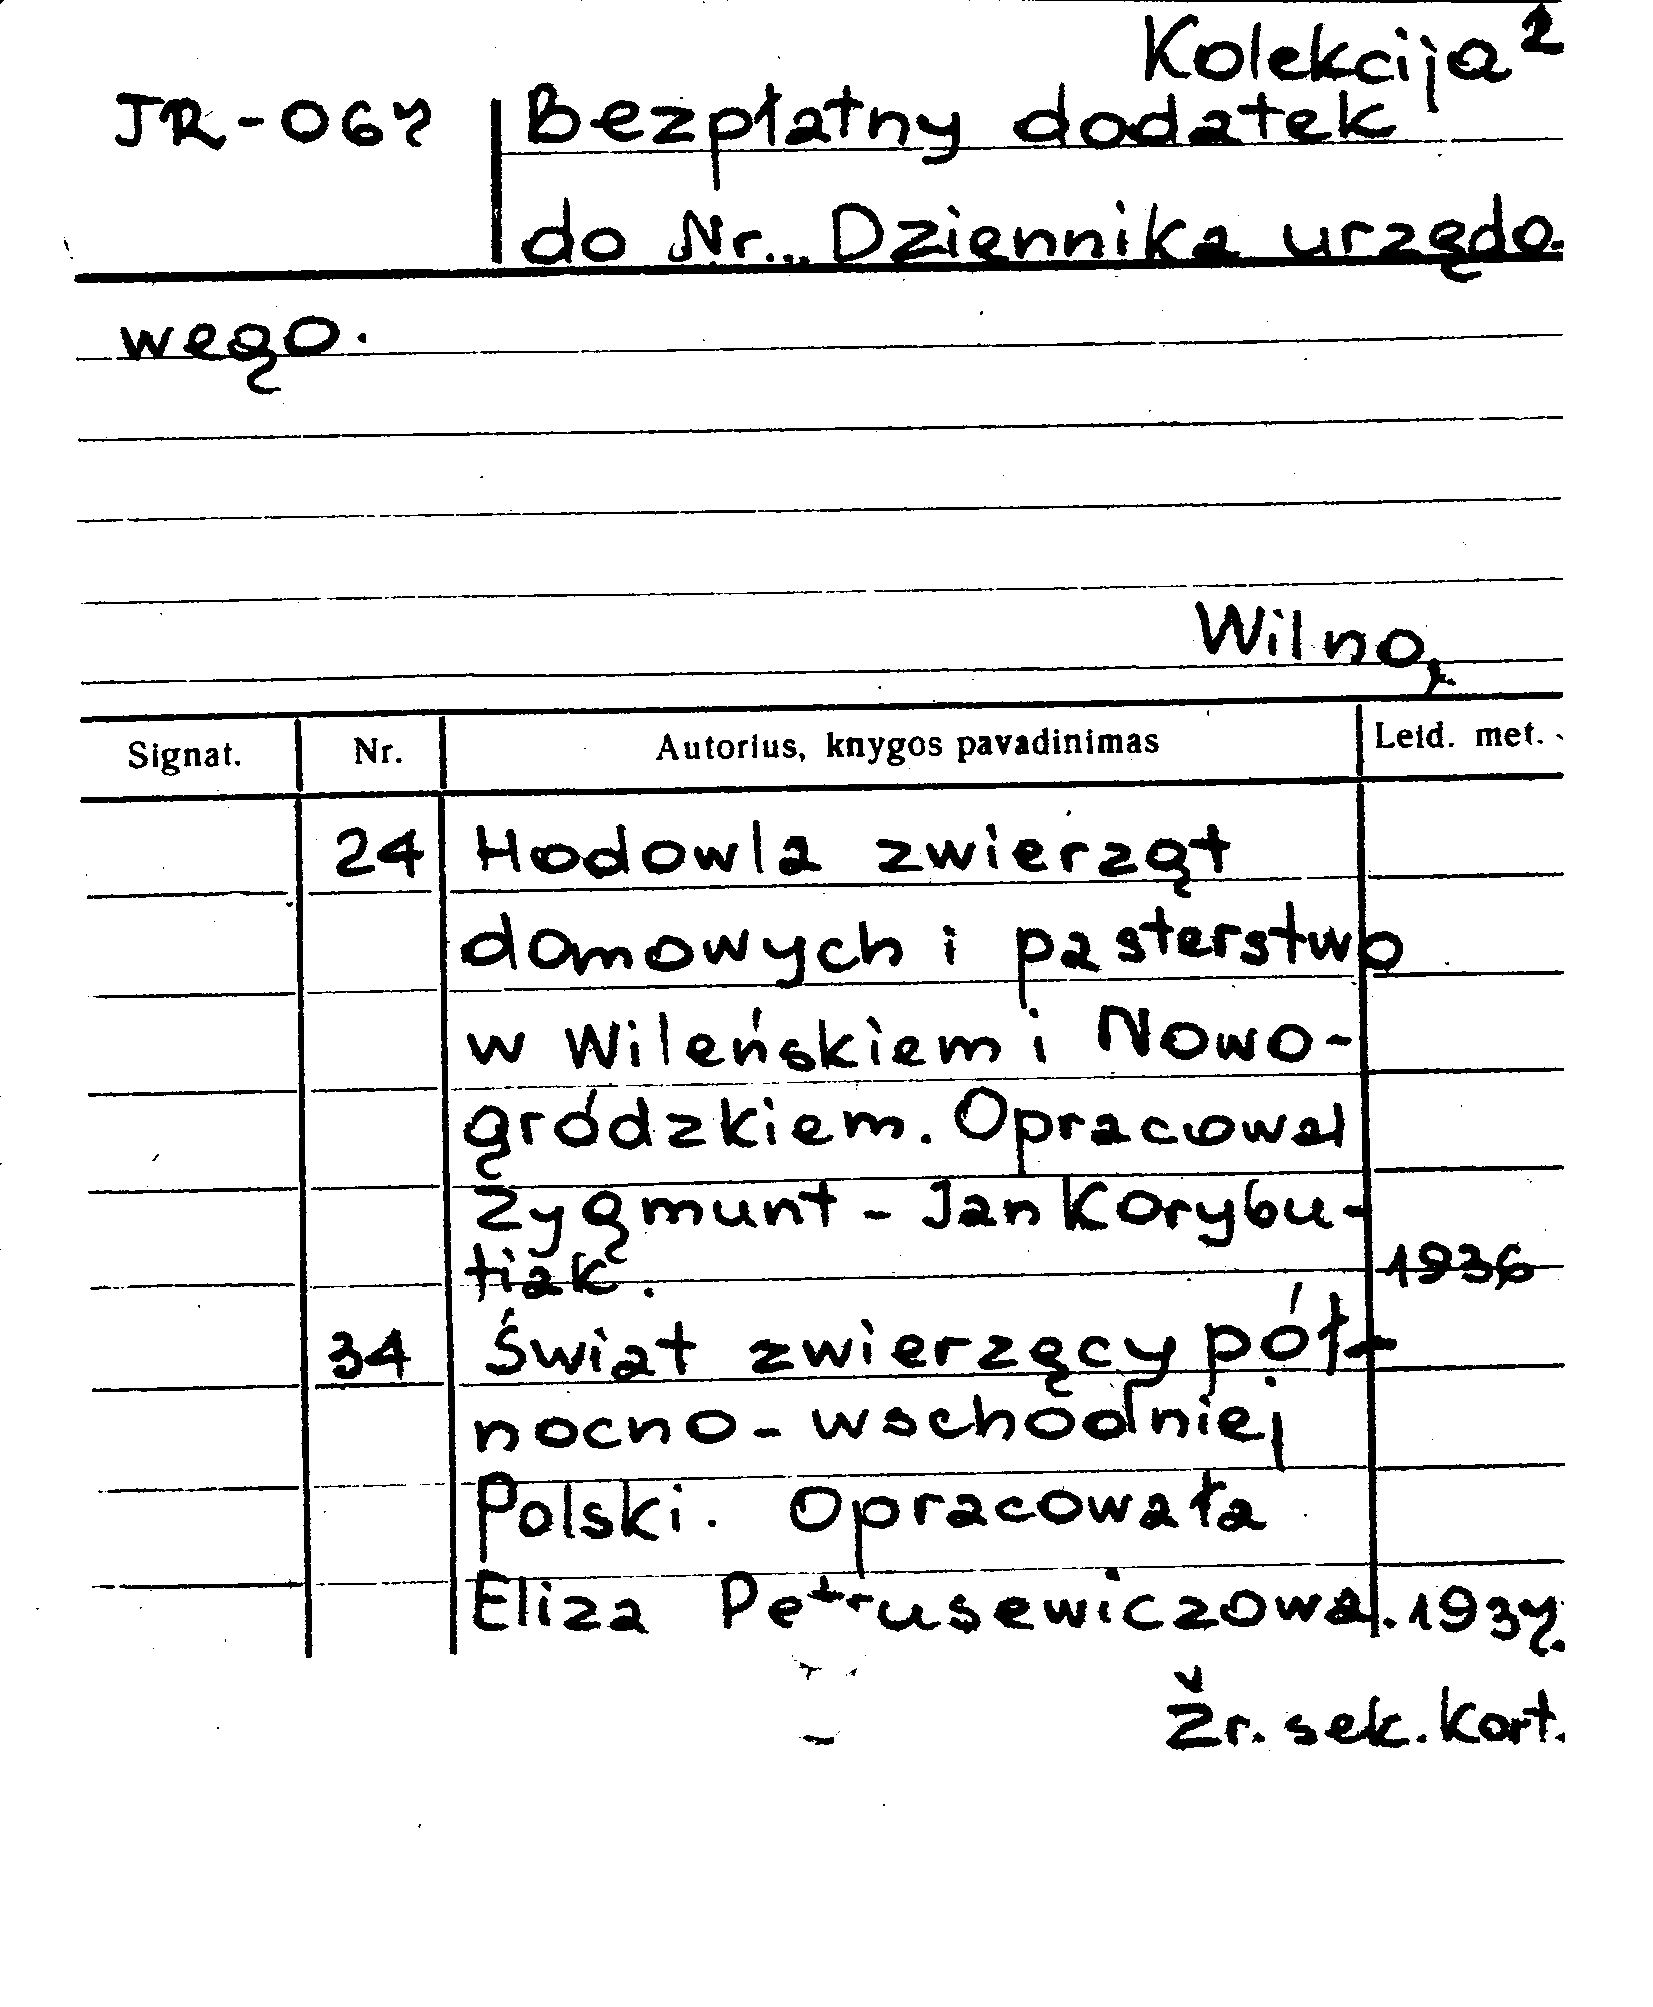 Kolekcija 2
JR-067 Bezpłatny dodatek
do Nr... Dziennika urzędo-
wego.
Wilno,
Signat. Nr. Autorius, knygos pavadinimas Leid. met.
24 Hodowla zwierząt
domowych i pasterstwo
w Wileńskiem i Nowo-
gródzkiem. Opracował
Zygmunt - Jan Korybu-
tiak. 1936
34 Świat zwierzęcy pół-
nocno - wschodniej
Polski. Opracowała
Eliza Petrusewiczowa. 1937.
Žr. sek. kort.